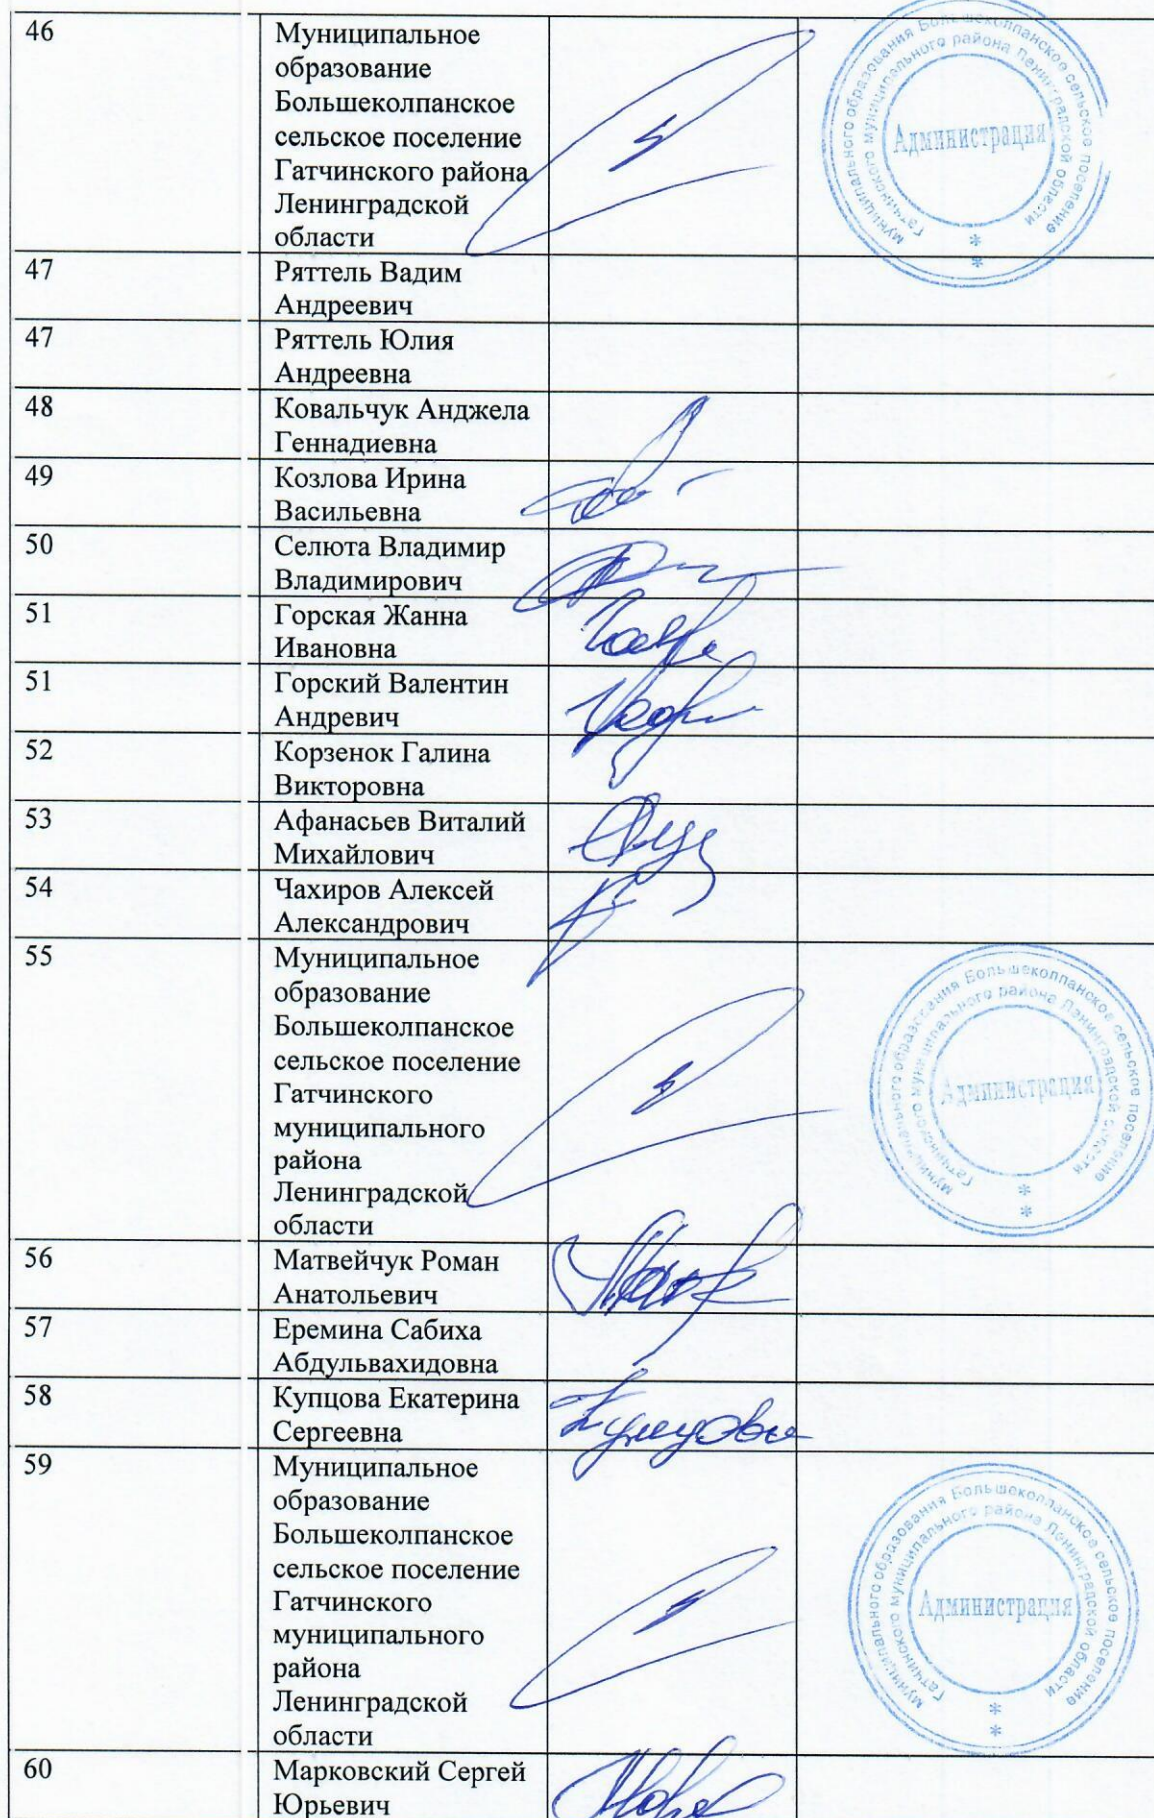 46
Муниципальное
образование
Большеколпанское
сельское поселение
Гатчинского района
Ленинградской
области
муниципального образования Большеколпанское сельское поселение
Гатчинского муниципального района Ленинградской области
Администрация
47
Ряттель Вадим
Андреевич
47
Ряттель Юлия
Андреевна
48
Ковальчук Анджела
Геннадиевна
49
Козлова Ирина
Васильевна
50
Селюта Владимир
Владимирович
51
Горская Жанна
Ивановна
51
Горский Валентин
Андревич
52
Корзенок Галина
Викторовна
53
Афанасьев Виталий
Михайлович
54
Чахиров Алексей
Александрович
55
Муниципальное
образование
Большеколпанское
сельское поселение
Гатчинского
муниципального
района
Ленинградской
области
муниципального образования Большеколпанское сельское поселение
Гатчинского муниципального района Ленинградской области
Администрация
56
Матвейчук Роман
Анатольевич
57
Еремина Сабиха
Абдульвахидовна
58
Купцова Екатерина
Сергеевна
59
Муниципальное
образование
Большеколпанское
сельское поселение
Гатчинского
муниципального
района
Ленинградской
области
муниципального образования Большеколпанское сельское поселение
Гатчинского муниципального района Ленинградской области
Администрация
60
Марковский Сергей
Юрьевич